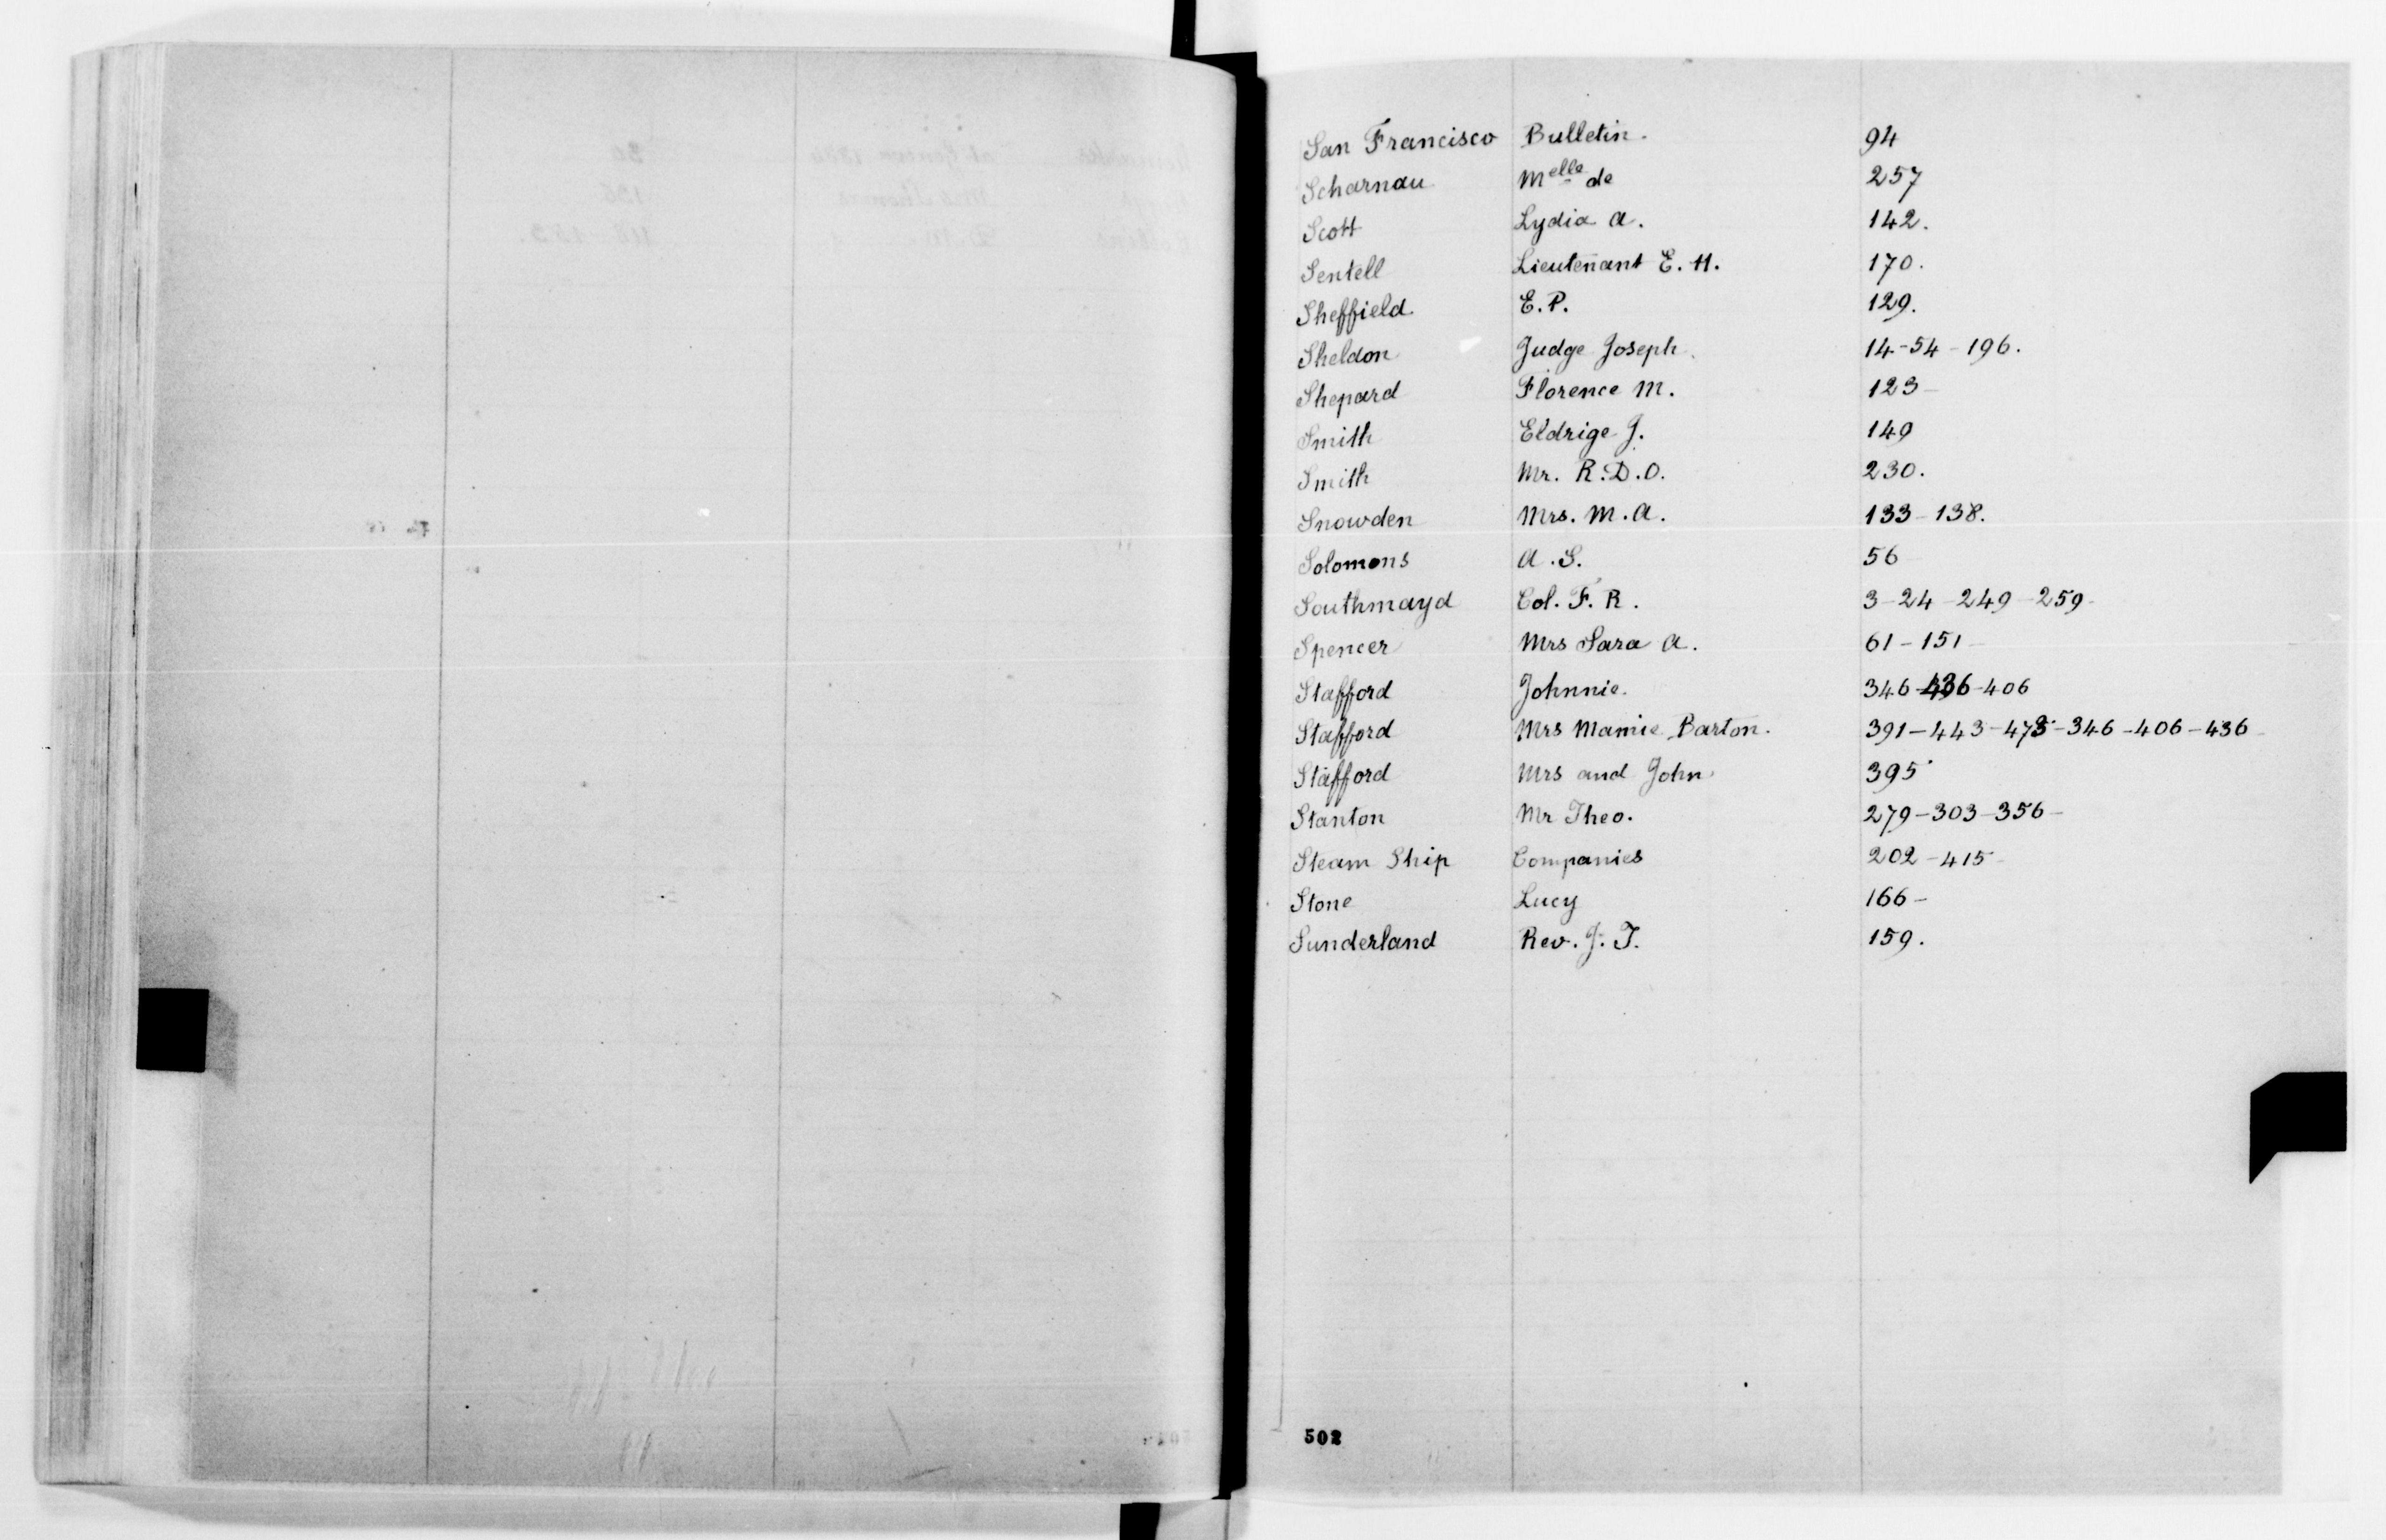 San Francisco Bulletin. 94
Scharnau Melle de 257
Scott Lydia A. 142.
Sentell Lieutenant E. H. 170.
Sheffield E. P. 129.
Sheldon Judge Joseph. 14-54-196.
Shepard Florence M. 123-
Smith Eldrige J. 149
Smith Mr. R. D. O. 230.
Snowden Mrs. M. A. 133-138.
Solomons A. S. 56
Southmayd Col. F. R. 3-24-249-259-
Spencer Mrs Sara A. 61-151-
Stafford Johnnie. 346-436-406
Stafford Mrs Mamie Barton. 391-443-473-346-406-436-
Stafford Mrs and John. 395
Stanton Mr Theo. 279-303-356-
Steam Ship Companies 202-415-
Stone Lucy 166-
Sunderland Rev. J. T. 159.
502